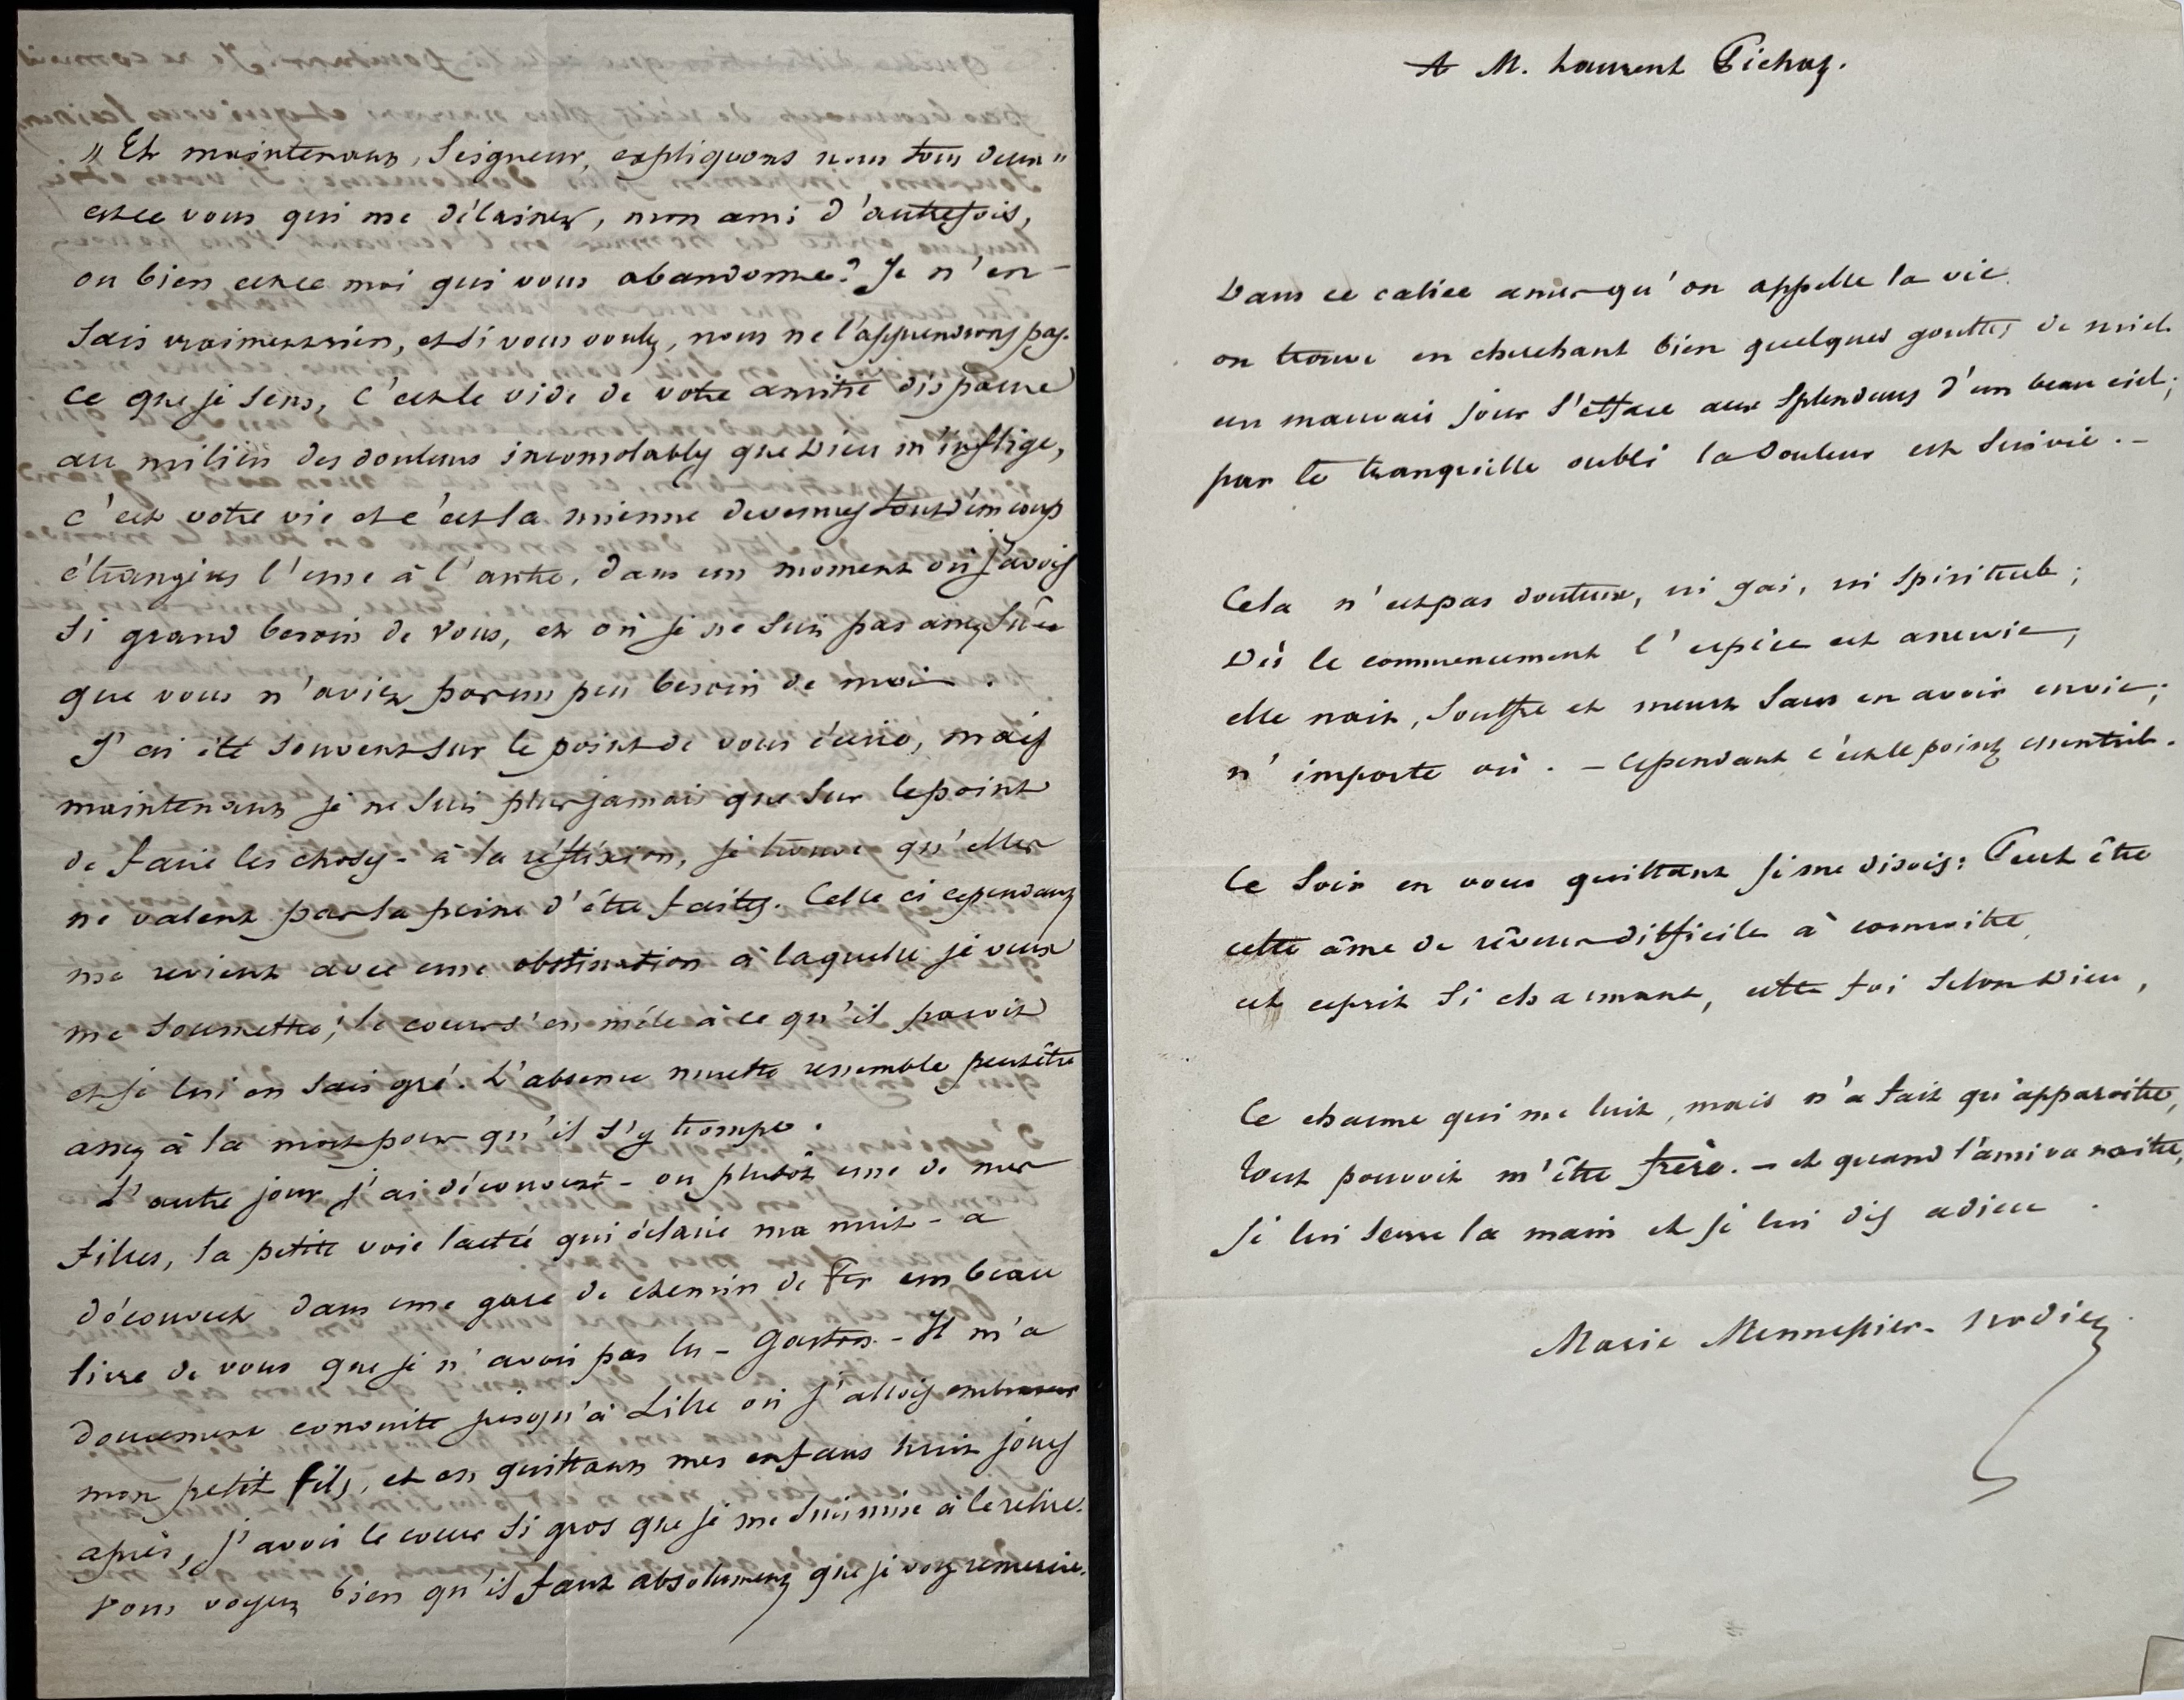 „ Et maintenant, Seigneur, expliquons nous tous deux"
est ce vous qui me délaissez, mon ami d'autrefois,
ou bien est ce moi qui vous abandonne? Je n'en
sais vraiment rien, et si vous voulez, nous ne l'apprendrons pas.
Ce que je sens, c'est le vide de votre amitié disparue
au milieu des douleurs inconsolables que Dieu m'inflige,
c'est votre vie et c'est la mienne devenues tout d'un coup
étrangères l'une à l'autre, dans un moment où j'avois
si grand besoin de vous, et où je ne suis pas assez sûre
que vous n'aviez pas un peu besoin de moi.
J'ai été souvent sur le point de vous écrire, mais
maintenant je ne suis plus jamais que sur le point
de faire les choses - à la réflexion, je trouve qu'elles
ne valent pas la peine d'être faites. Celle ci cependant
me revient avec une obstination à laquelle je veux
me soumettre; le cœur s'en mêle à ce qu'il paroit
et je lui en sais gré. L'absence muette ressemble peut être
assez à la mort pour qu'il s'y trompe.
L'autre jour j'ai découvert - ou plutôt une de mes
filles, la petite voie lactée qui éclaire ma nuit - a
découvert dans une gare de chemin de Fer un beau
livre de vous que je n'avois pas lu - Gaston. - Il m'a
doucement conduite jusqu'à Lille où j'allois embrasser
mon petit fils, et en quittant mes enfans huit jours
après, j'avois le cœur si gros que je me suis mise à le relire.
Vous voyez bien qu'il faut absolument que je vous remercie.
A M. Laurent Pichat.
Dans ce calice amer qu'on appelle la vie
on trouve en cherchant bien quelques gouttes de miel
un mauvais jour s'efface aux splendeurs d'un beau ciel;
par le tranquille oubli la douleur est suivie. -
Cela n'est pas douteux, ni gai, ni spirituel;
Dès le commencement l'espèce est asservie,
elle nait, souffre et meurt sans en avoir envie;
n'importe où. - Cependant c'est le point essentiel.
Ce soir en vous quittant je me disois: Peut être
cette âme de rêveur difficile à connoitre
cet esprit si charmant, cette foi selon Dieu,
Ce charme qui me luit, mais n'a fait qu'apparoitre,
tout pouvoit m'être frère. - et quand l'ami va naitre,
je lui serre la main et je lui dis adieu.
Marie Mennessier-Nodier